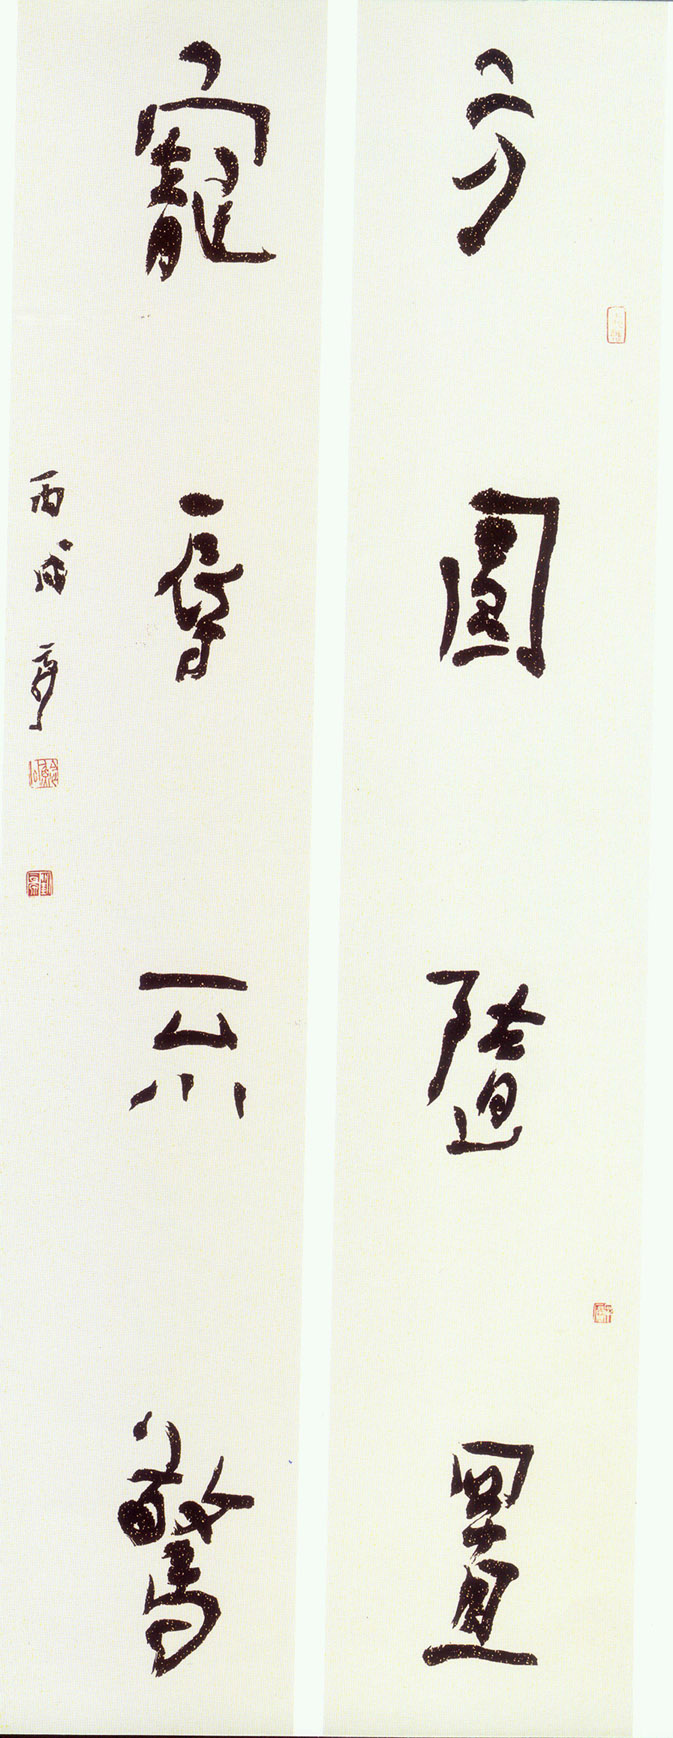 方圓隨置
寵辱不驚
丙戌